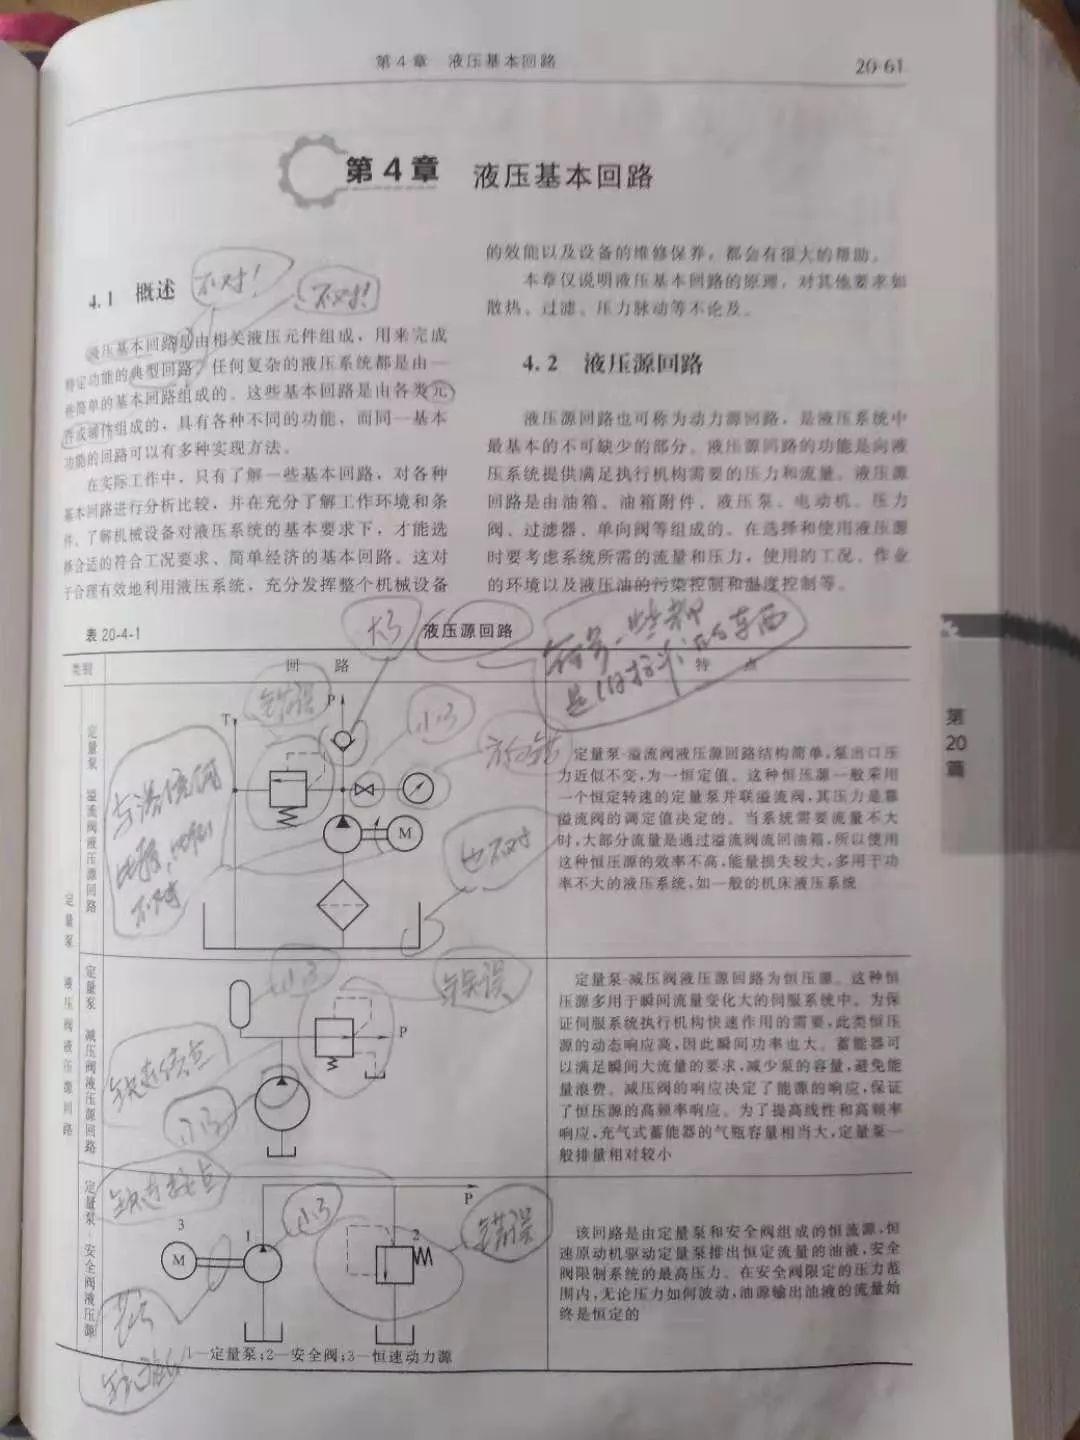 第4章 液压基本回路
20-61
第4章 液压基本回路
4.1 概述
不对!
不对!
液压基本回路是由相关液压元件组成，用来完成
特定功能的典型回路。任何复杂的液压系统都是由一
些简单的基本回路组成的。这些基本回路是由各类元
件或辅件组成的，具有各种不同的功能，而同一基本
功能的回路可以有多种实现方法。
在实际工作中，只有了解一些基本回路，对各种
基本回路进行分析比较，并在充分了解工作环境和条
件、了解机械设备对液压系统的基本要求下，才能选
择合适的符合工况要求、简单经济的基本回路。这对
于合理有效地利用液压系统，充分发挥整个机械设备
的效能以及设备的维修保养，都会有很大的帮助。
本章仅说明液压基本回路的原理，对其他要求如
散热、过滤、压力脉动等不论及。
4.2 液压源回路
液压源回路也可称为动力源回路，是液压系统中
最基本的不可缺少的部分。液压源回路的功能是向液
压系统提供满足执行机构需要的压力和流量。液压源
回路是由油箱、油箱附件、液压泵、电动机、压力
阀、过滤器、单向阀等组成的。在选择和使用液压源
时要考虑系统所需的流量和压力，使用的工况、作业
的环境以及液压油的污染控制和温度控制等。
表 20-4-1
液压源回路
大了
类别
回路
特点
定量泵 液压阀液压源回路
定量泵 溢流阀液压源回路
T
P
M
错误
小了
也不对
定量泵-溢流阀液压源回路结构简单，泵出口压
力近似不变，为一恒定值。这种恒压源一般采用
一个恒定转速的定量泵并联溢流阀，其压力是靠
溢流阀的调定值决定的。当系统需要流量不大
时，大部分流量是通过溢流阀流回油箱，所以使用
这种恒压源的效率不高，能量损失较大，多用于功
率不大的液压系统，如一般的机床液压系统
定量泵 减压阀液压源回路
P
小了
错误
缺连结点
小了
定量泵-减压阀液压源回路为恒压源。这种恒
压源多用于瞬间流量变化大的伺服系统中。为保
证伺服系统执行机构快速作用的需要，此类恒压
源的动态响应高，因此瞬间功率也大。蓄能器可
以满足瞬间大流量的要求，减少泵的容量，避免能
量浪费。减压阀的响应决定了能源的响应，保证
了恒压源的高频率响应。为了提高线性和高频率
响应，充气式蓄能器的气瓶容量相当大，定量泵一
般排量相对较小
定量泵-安全阀液压源
3
M
1
2
P
小了
错误
该回路是由定量泵和安全阀组成的恒流源，恒
速原动机驱动定量泵排出恒定流量的油液，安全
阀限制系统的最高压力。在安全阀限定的压力范
围内，无论压力如何波动，油源输出油液的流量始
终是恒定的
1—定量泵；2—安全阀；3—恒速动力源
第
20
篇